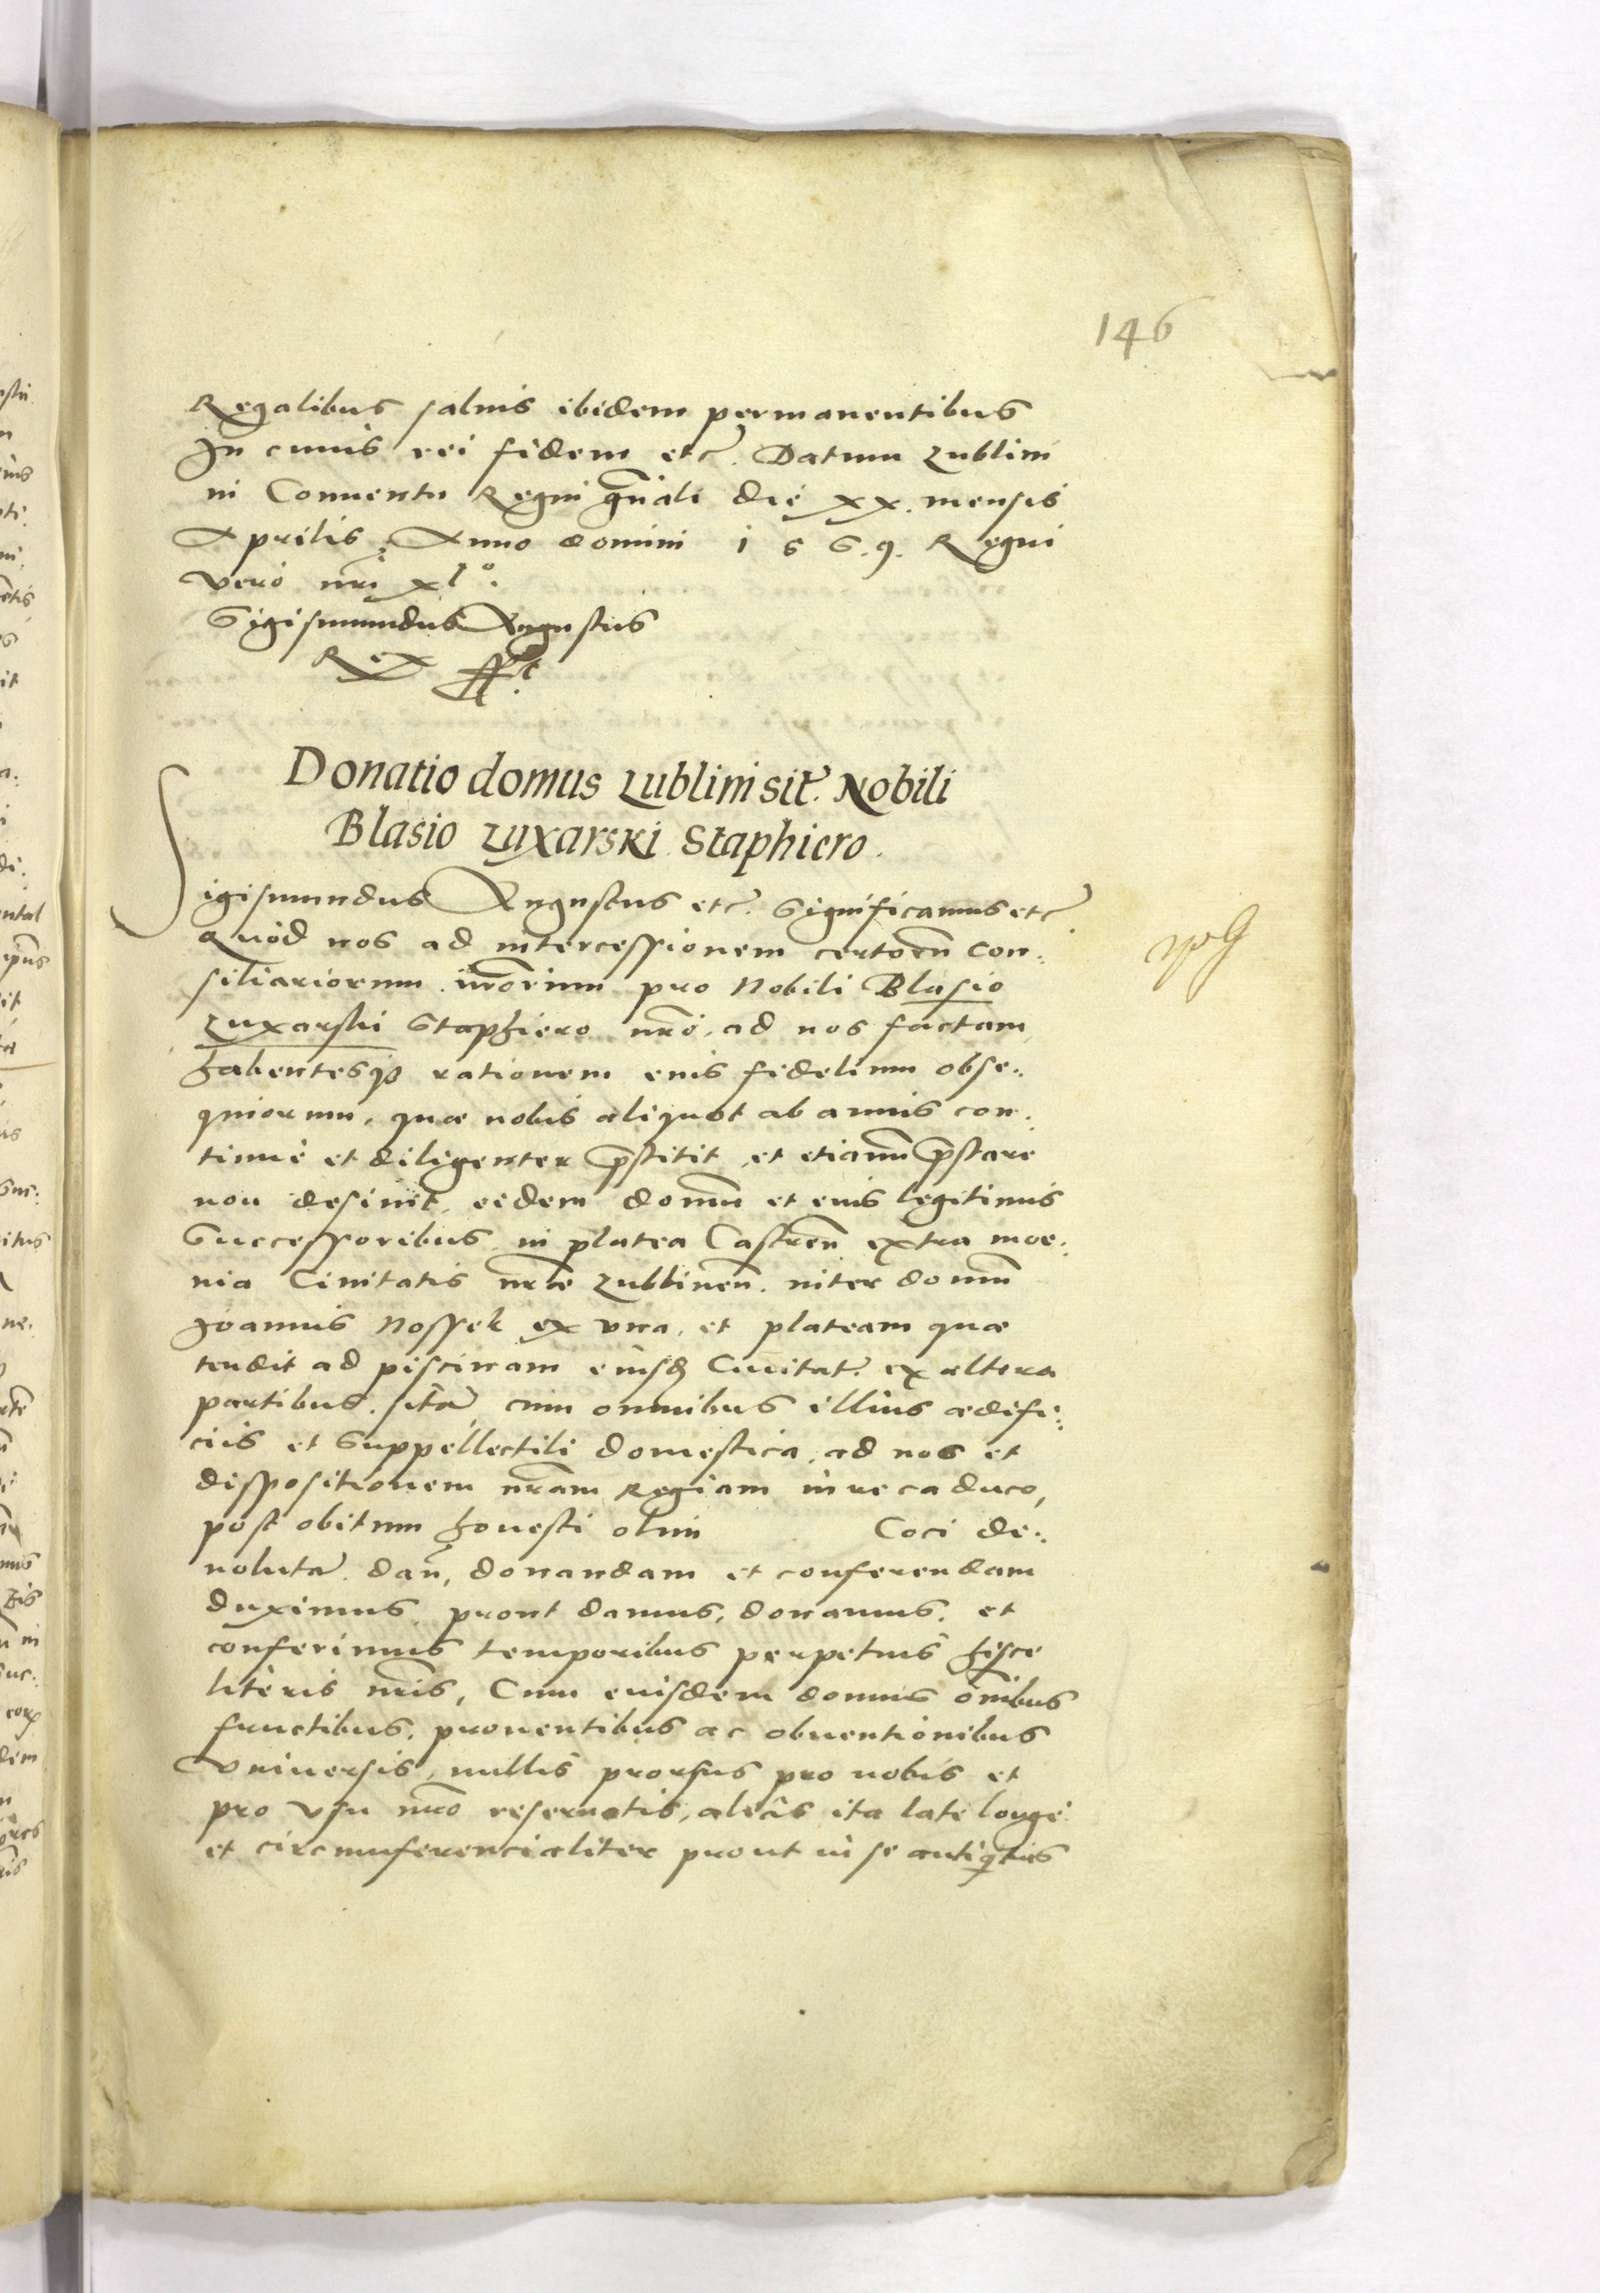 146
Regalibus saluis ibidem permanentibus
In cuius rei fidem etc. Datum Lublini
in Conuentu Regni gnāli die xx. mensis
Aprilis, Anno domini 1 5 6. 9. Regni
vero nrī xl°.
Sigismundus Augustus
Rex
Donatio domus Lublini sit. Nobili
Blasio Luxarski Staphiero.
Sigismundus Augustus etc. Significamus etc
Quod nos ad intercessionem certorū con:
siliariorum nrōrum pro Nobili Blasio
Luxarski Staphiero nrō, ad nos factam,
habentesq rationem eius fidelium obse:
quiorum, quæ nobis aliquot ab annis con:
tinuè et diligenter p̄stitit, et etiamnū p̄stare
non desinit, eidem domū et eius legitimis
Successoribus in platea Castren̄ extra moe:
nia Ciuitatis nrǣ Lublinen̄. inter domū
Joannis Nossek ex vna, et plateam quæ
tendit ad piscinam eiusd Ciuitat. ex altera
partibus, sitā, cum omnibus illius ædifi:
ciis et Suppellectili domestica, ad nos et
dispositionem nrām Regiam iure caduco,
post obitum honesti olim Coci de:
uolutā dan̄, donandam et conferendam
duximus prout damus, donamus, et
conferimus temporibus perpetuis hisce
literis nrīs, Cum eiusdem domus oībus
fructibus, prouentibus ac obuentionibus
Vniuersis, nullis prorsus pro nobis et
pro vsu nrō reseruatis, aliās ita latè longè
et circumferencialiter prout in se antiquitus